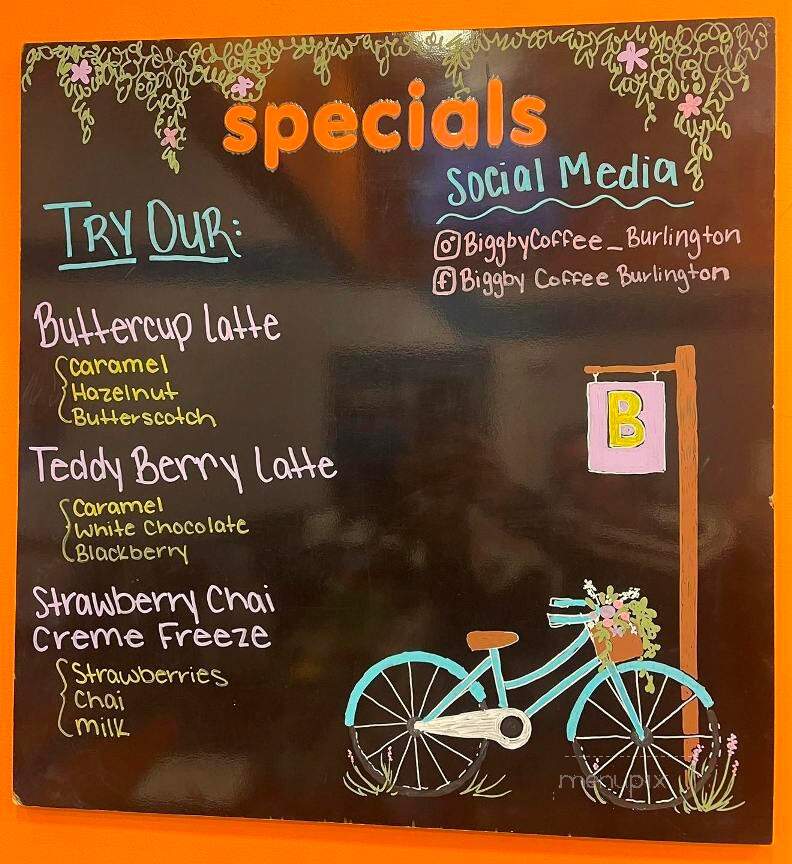 specials
Social Media
BiggbyCoffee_Burlington
Biggby Coffee Burlington
TRY OUR:
Buttercup Latte
Caramel
Hazelnut
Butterscotch
Teddy Berry Latte
Caramel
White Chocolate
Blackberry
Strawberry Chai
Creme Freeze
Strawberries
Chai
Milk
B
menupix